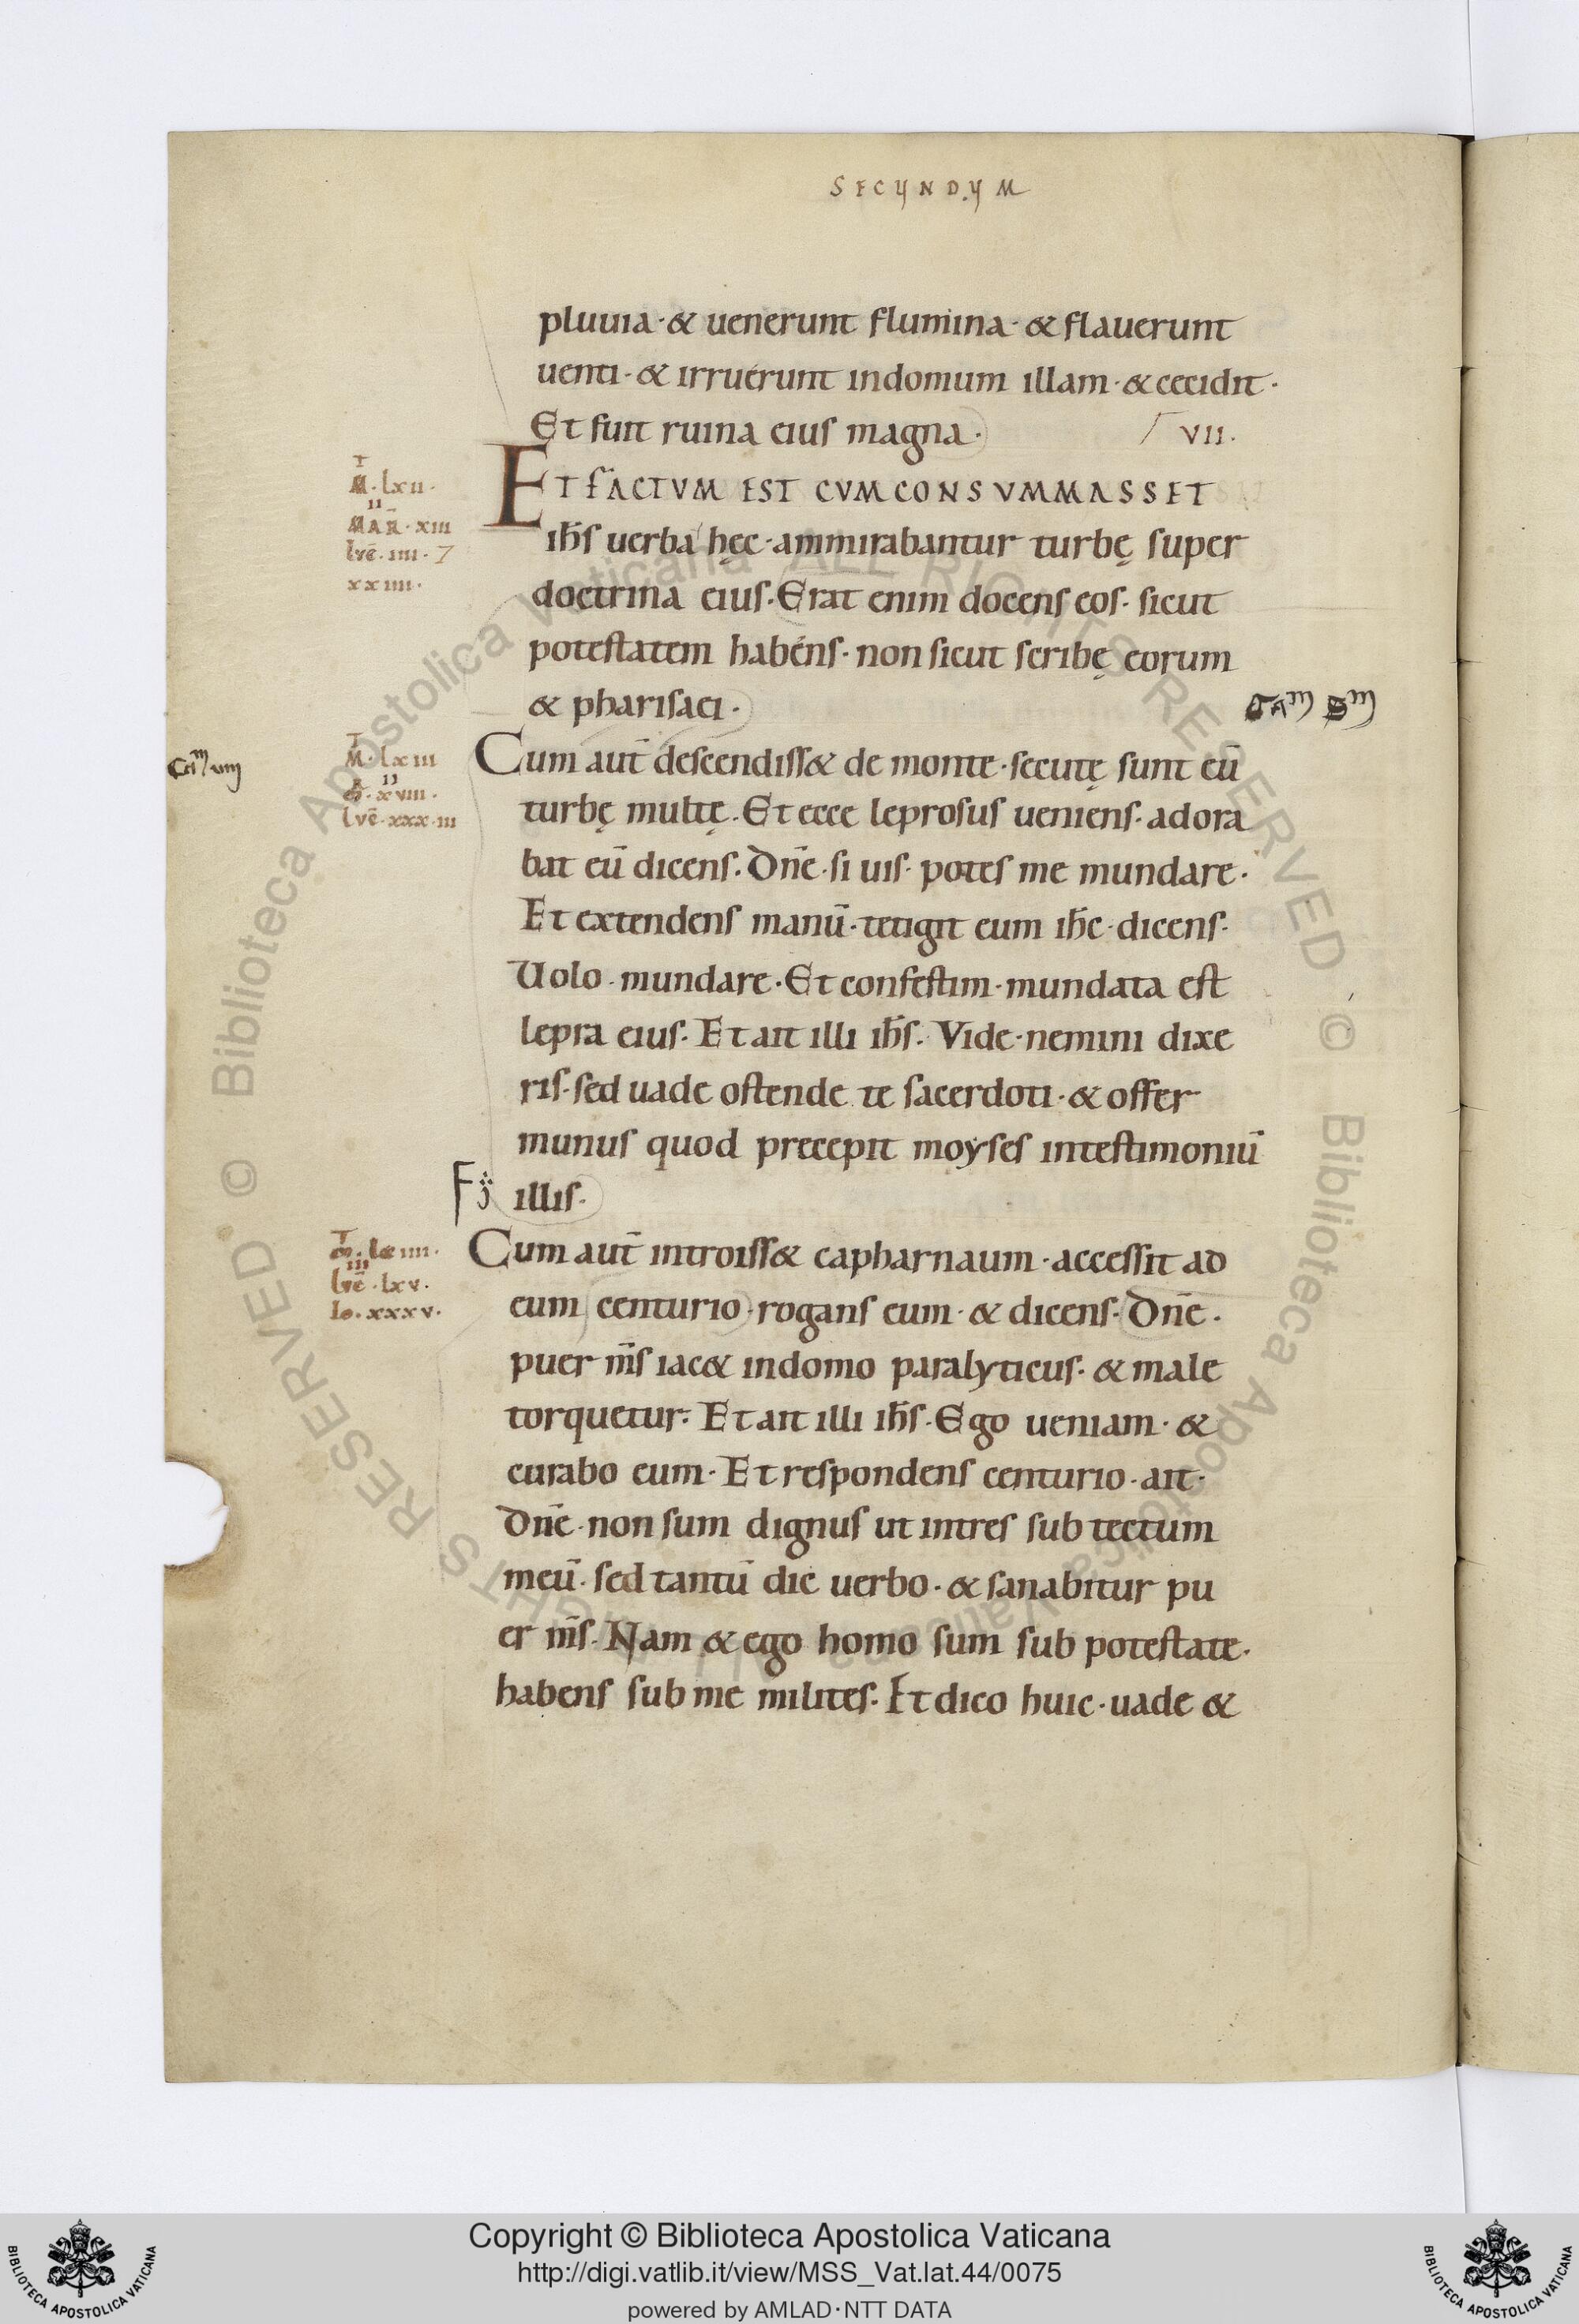 SECUNDUM
pluuia · & uenerunt flumina · & flauerunt
uenti · & irruerunt indomum illam · & cecidit ·
Et fuit ruina eius magna ·
VII ·
ET FACTVM EST CVM CONSVMMASSET
M · lxii ·
II
MAR̄ · xiii
lvc̄ · iiii · 7
xxiiii ·
ih̄s uerba hęc · ammirabantur turbę super
doctrina eius · Erat enim docens eos · sicut
potestatem habens · non sicut scribę eorum
& pharisaei ·
M · lxiii
II
xviii ·
lvc̄ · xxxiii
Cum aut̄ descendiss& de monte · secutę sunt eū
turbę multę · Et ecce leprosus ueniens · adora
bat eū dicens · Dn̄e · si uis · potes me mundare ·
Et extendens manū · tetigit eum ih̄c · dicens ·
Uolo · mundare · Et confestim · mundata est
lepra eius · Et ait illi ih̄s · Vide · nemini dixe
ris · sed uade ostende te sacerdoti · & offer
munus quod precepit moyses intestimoniū
illis ·
III
lvc̄ · lxv ·
Io · xxxv ·
Cum aut̄ introiss& capharnaum · accessit ad
eum centurio · rogans eum · & dicens · Dn̄e ·
puer m̄s iac& indomo paralyticus · & male
torquetur · Et ait illi ih̄s · Ego ueniam · &
curabo eum · Et respondens centurio · ait ·
Dn̄e · non sum dignus ut intres sub tectum
meū · sed tantū dic uerbo · & sanabitur pu
er m̄s · Nam & ego homo sum sub potestate ·
habens sub me milites · Et dico huic · uade &
© Biblioteca Apostolica Vaticana ALL RIGHTS RESERVED © Biblioteca Apostolica Vaticana ALL RIGHTS RESERVED
Copyright © Biblioteca Apostolica Vaticana
http://digi.vatlib.it/view/MSS_Vat.lat.44/0075
powered by AMLAD·NTT DATA
BIBLIOTECA APOSTOLICA VATICANA
BIBLIOTECA APOSTOLICA VATICANA